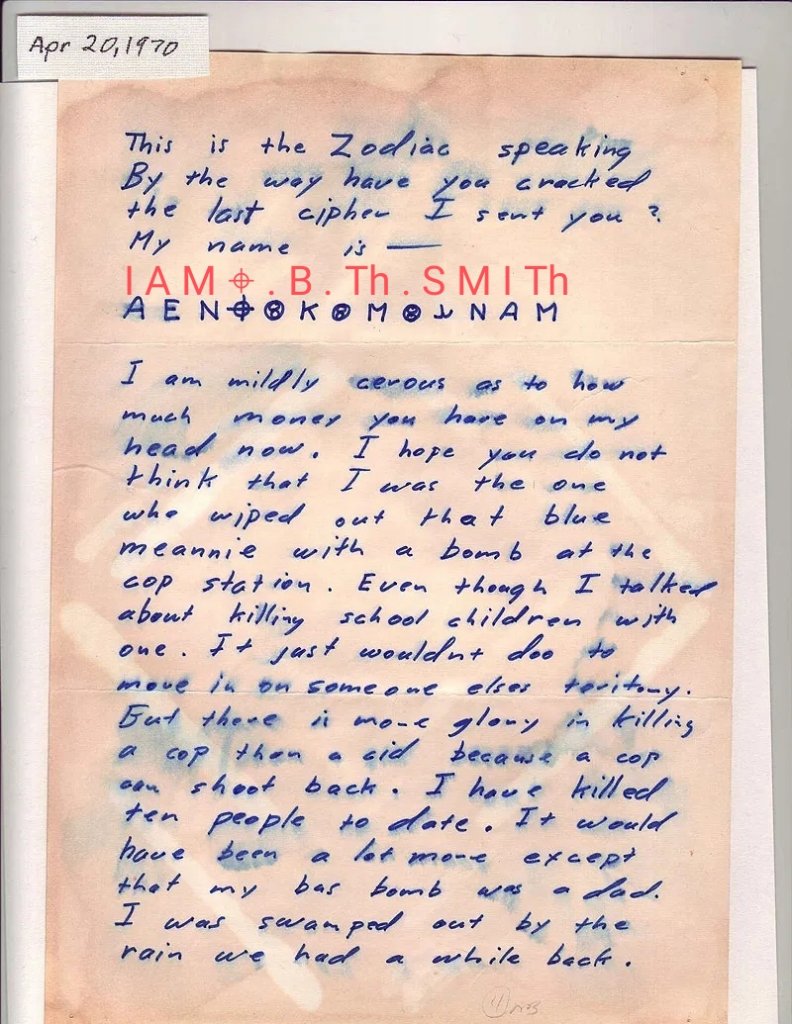 Apr 20, 1970
This is the Zodiac speaking
By the way have you cracked
the last cipher I sent you?
My name is —
I A M ⌖ . B . Th . S M I Th
A E N ⌖ ⊗ K ⊗ M ⊗ ⅄ N A M
I am mildly cerous as to how
much money you have on my
head now. I hope you do not
think that I was the one
who wiped out that blue
meannie with a bomb at the
cop station. Even though I talked
about killing school children with
one. It just wouldnt doo to
move in on someone elses teritory.
But there is more glory in killing
a cop than a cid because a cop
can shoot back. I have killed
ten people to date. It would
have been a lot more except
that my bus bomb was a dud.
I was swamped out by the
rain we had a while back.